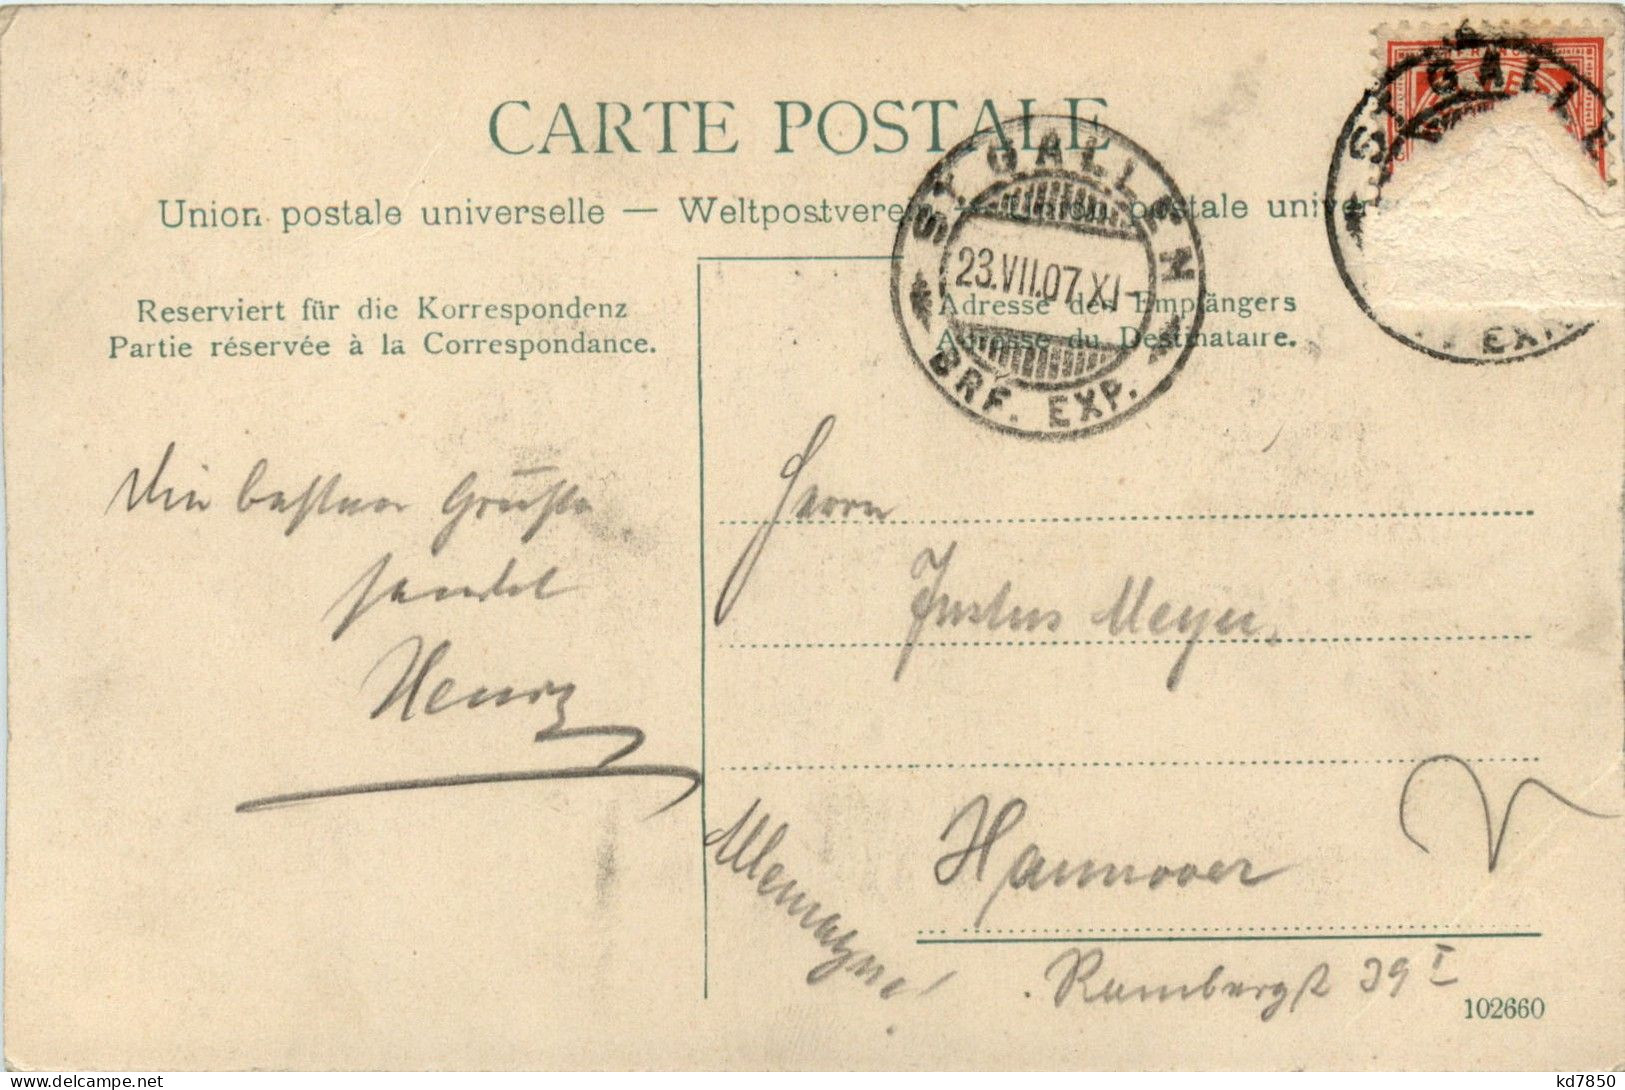 CARTE POSTALE
Union postale universelle — Weltpostverein — Union postale univers
ST. GALLEN
23.VII.07.XI-
BRF. EXP.
ST. GALLE
EXP.
FRANCO
Reserviert für die Korrespondenz
Partie réservée à la Correspondance.
Adresse des Empfängers
Adresse du Destinataire.
Die besten Grüße
sendet
Henry
Herrn
Justus Meyer,
Hannover
Allemagne
Rambergst 39 I
102660
delcampe.net
kd7850